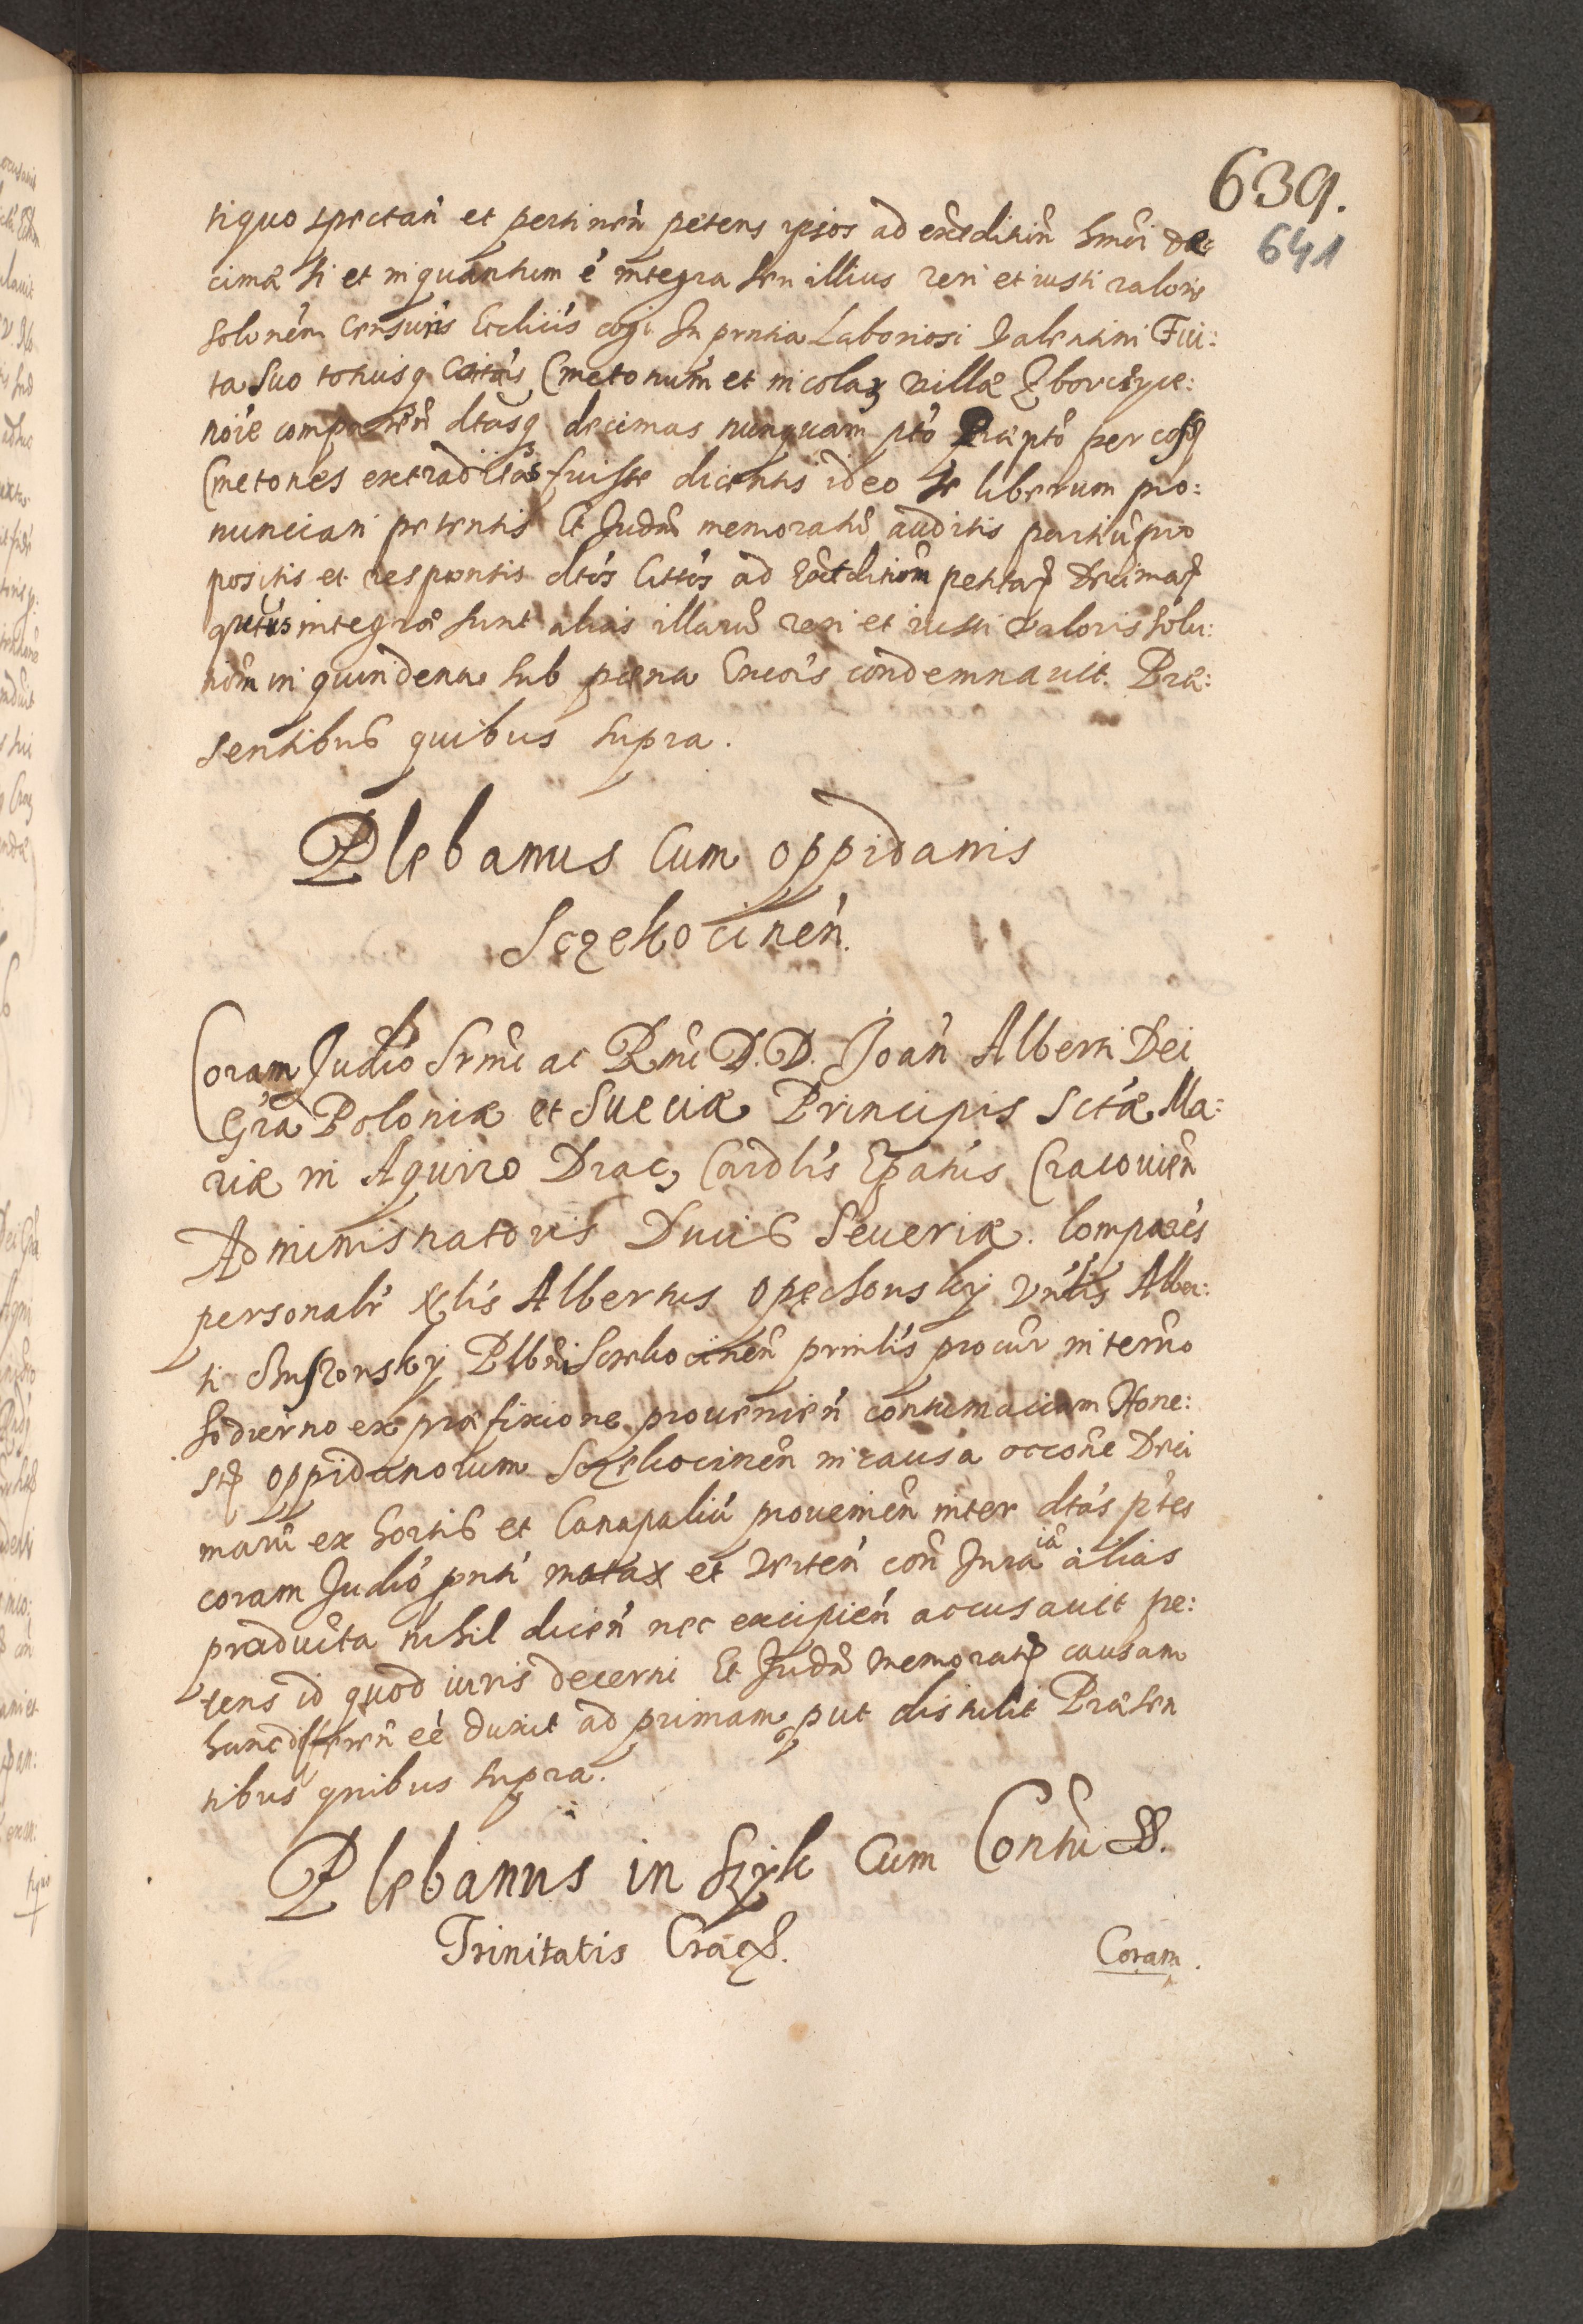 639.
641
tiquo spectań et pertineń petens ipsos ad extditiōn hm̄oi de:
cimæ si et in quantum é integra seu illius veri et iusti valoris
solonēm Censuris Ecclīis cogi In prntia Laboriosi Valentini
ta suo totiusq Coītis Cmetonum et incolaȝ villæ
nóie compareń dtasq decimas nunquam ptó per
Cmetones extraditas fuisse dicentis ideo se liberum pro:
nunciari petentis Et Judm̄ memoratū auditis partiū pro
positis et responsis dtós Cittós ad Extditiōm petitaꝝ Decimaꝝ
integræ sunt alias illarū veri et iusti valoris solu:
nōm in quindena sub pæna Excōis condemnauit. Præ:
sentibus quibus supra.
Plebanus Cum oppidanis
Sczekocineń.
Coram Judió Srmī ac Rmī D.D. Joań Alberti Dei
Gŕa Poloniæ et Sueciæ Principis Sctæ Ma:
riæ in Aquiro Diac, Cardlís Epatús Cracovień
Administratoris Ducis Seueriæ. Comparés
personalŕ Albertus Opechonsky Vnlís Alber:
ti Plbni Sczekocineń prinlís procūr in termō
hodierno ex præfixione prouenień contumaciam Hone:
stꝝ oppidanorum Sczekocineń in causa occōne Deci
marū ex hortis et Canapaliú prouenień inter dtás pṫes
coram Judió prnti motax et verteń con Jura iā alias
praducta nihil diceń nec excipień accusauit pe:
tens id quod iuris decerni Et Judm̄ memoratꝝ causam
hanc differeń eé duxit ad primam put distulit Præsen
tibus quibus supra.
Plebanus in Szyk Cum Contú SS.
Trinitatis
Coram.